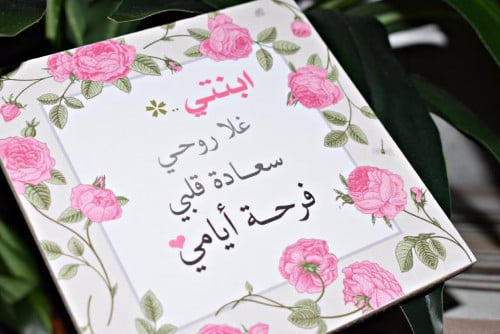 ابنتي ..
غلا روحي
سعادة قلبي
فرحة أيامي